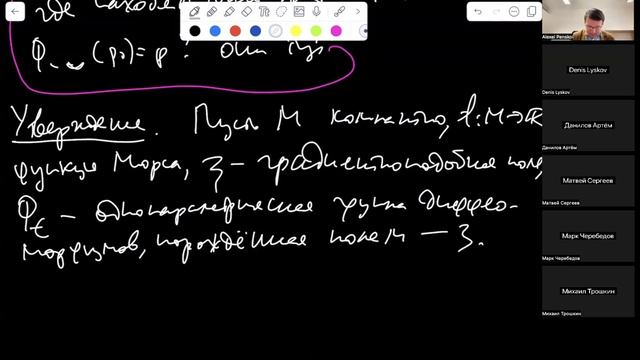 где
φ (p₀) = p ?
Утверждение. Пусть M компактно, f: M → ℝ
функция Морса, ξ – градиентноподобное поле,
φₜ – однопараметрическая группа диффео-
морфизмов, порождённая полем – ξ.
Alexei Penskoi
Denis Lyskov
Denis Lyskov
Данилов Артём
Данилов Артём
Матвей Сергеев
Матвей Сергеев
Марк Черебедов
Марк Черебедов
Михаил Трошкин
Михаил Трошкин